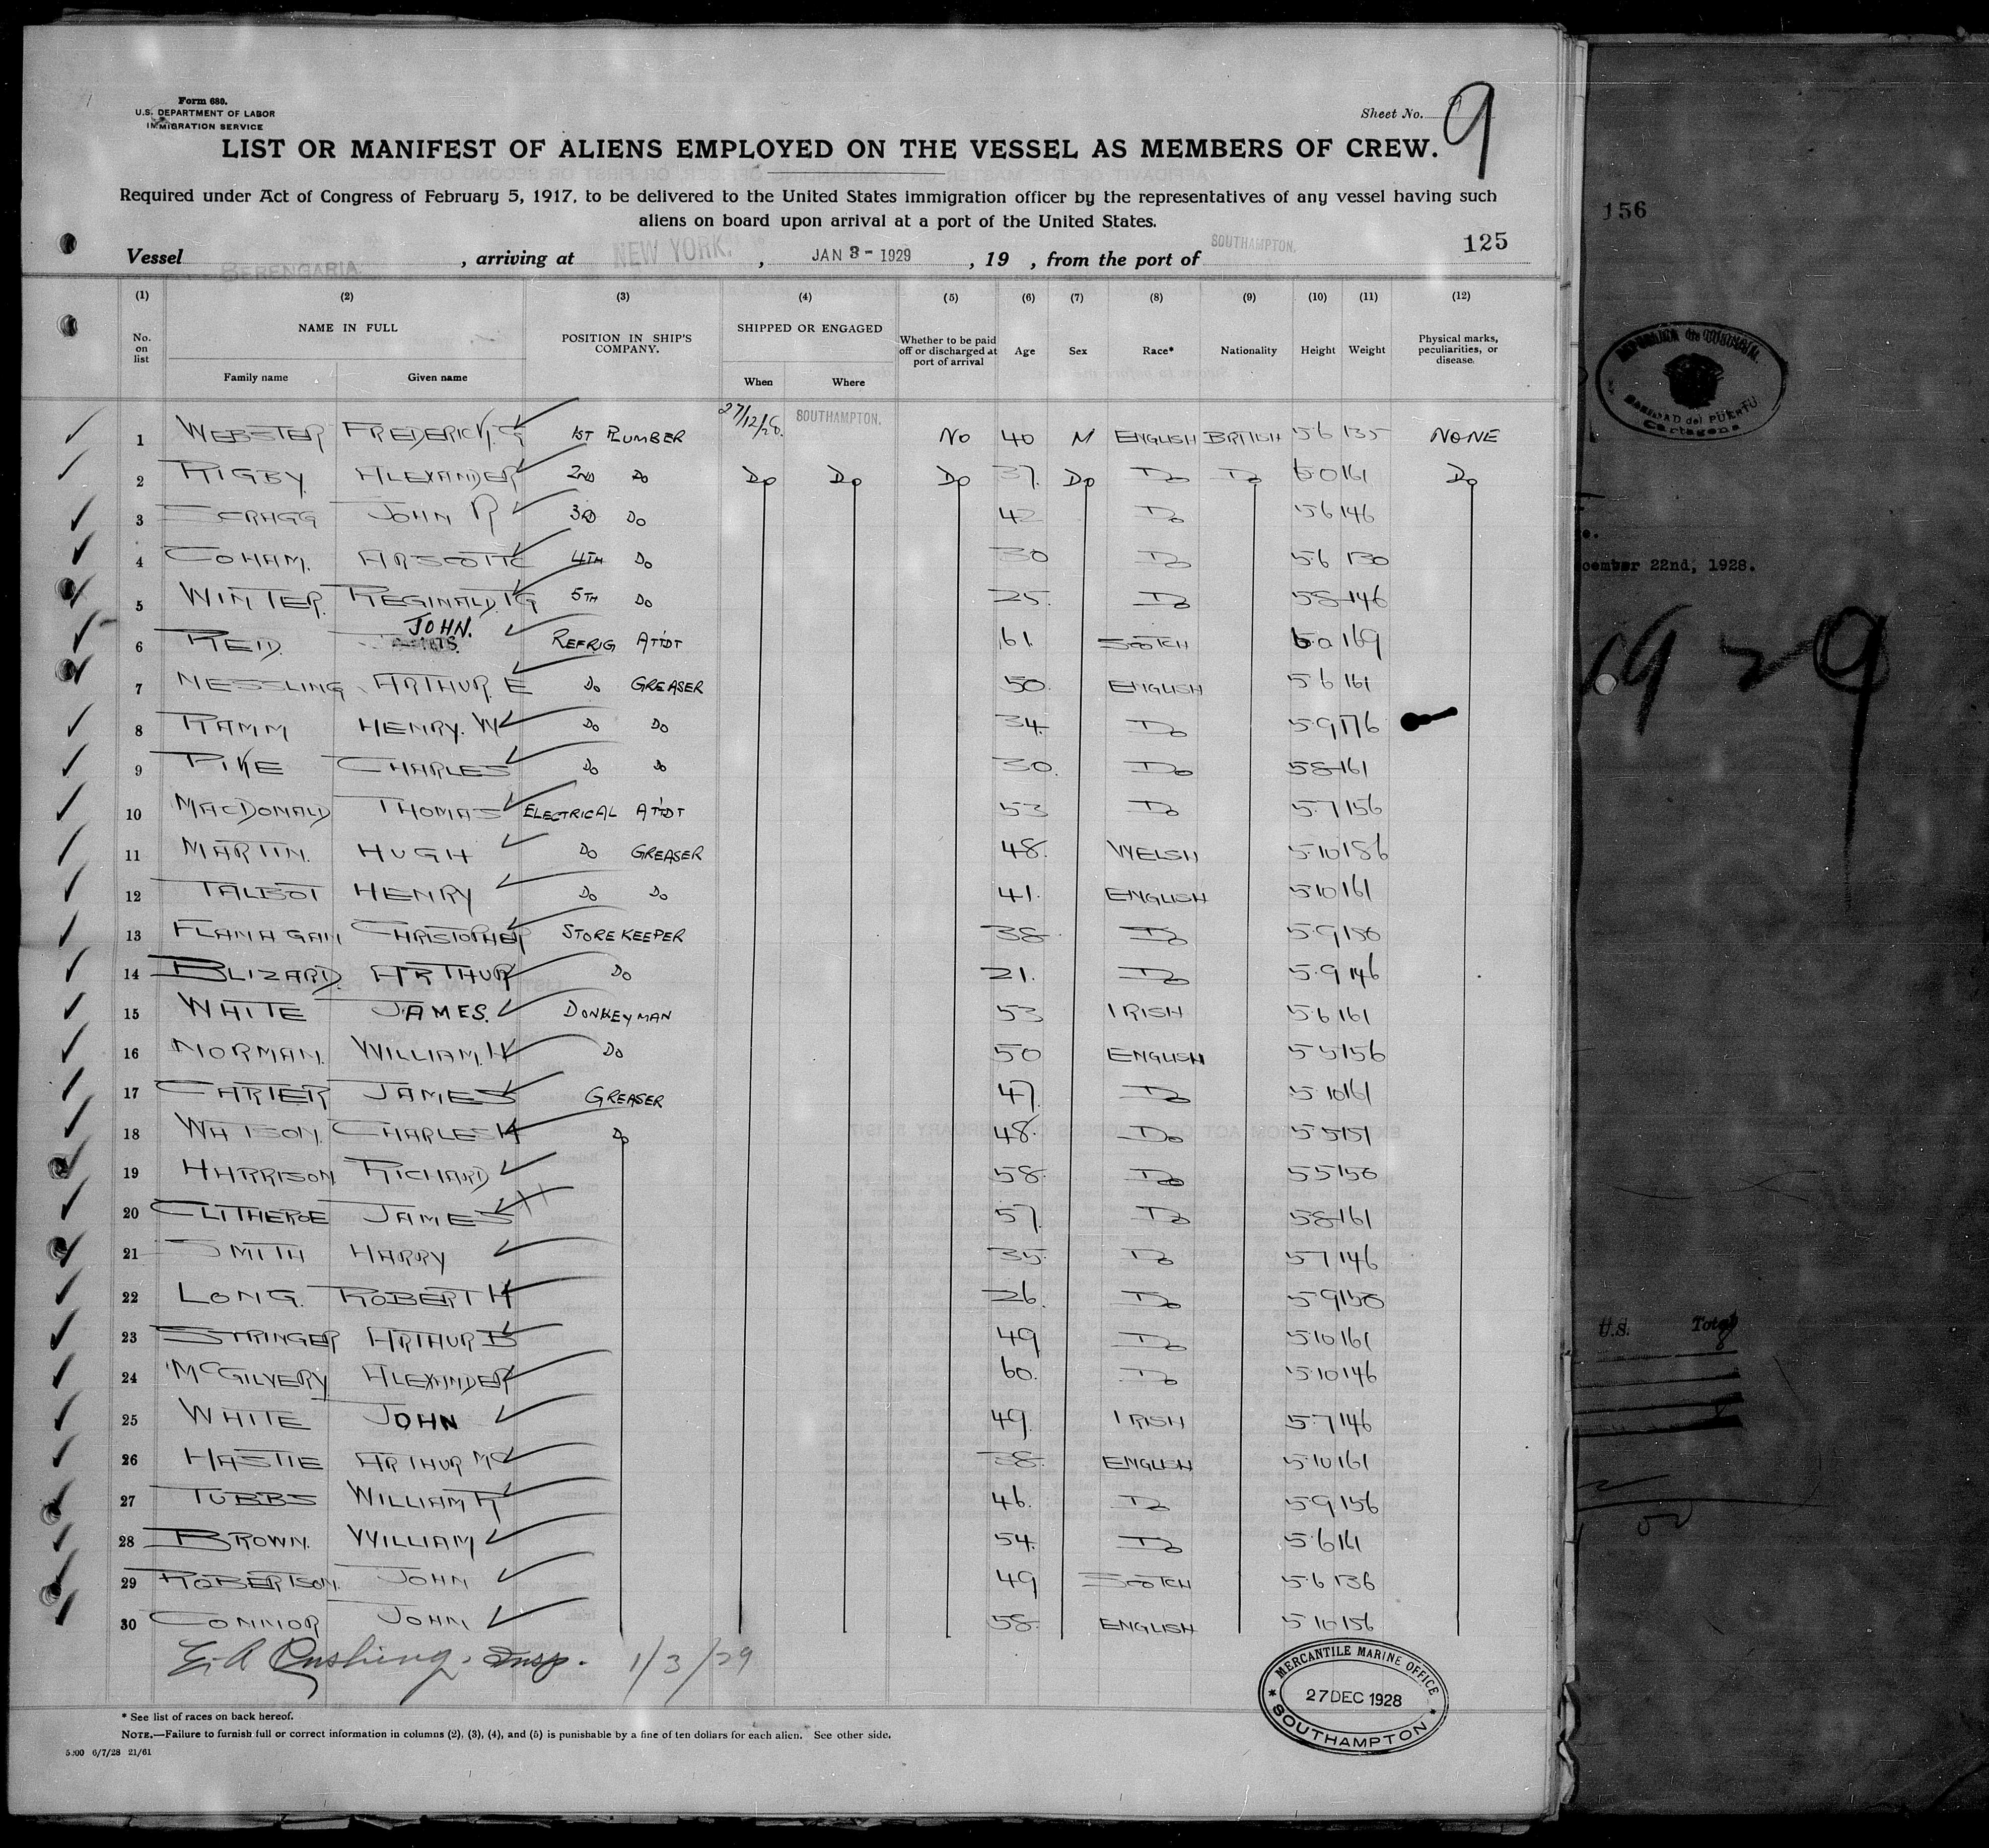 Form 680.
U.S. DEPARTMENT OF LABOR
IMMIGRATION SERVICE
Sheet No. 9
LIST OR MANIFEST OF ALIENS EMPLOYED ON THE VESSEL AS MEMBERS OF CREW.
Required under Act of Congress of February 5, 1917, to be delivered to the United States immigration officer by the representatives of any vessel having such
aliens on board upon arrival at a port of the United States.
125
Vessel BERENGARIA, arriving at NEW YORK., JAN 3 - 1929, 19 , from the port of SOUTHAMPTON.
(1) (2) (3) (4) (5) (6) (7) (8) (9) (10) (11) (12)
No. on list NAME IN FULL POSITION IN SHIP'S COMPANY. SHIPPED OR ENGAGED Whether to be paid off or discharged at port of arrival Age Sex Race* Nationality Height Weight Physical marks, peculiarities, or disease.
Family name Given name When Where
1 WEBSTER FREDERICK. G 1ST PLUMBER 27/12/28. SOUTHAMPTON. NO 40 M ENGLISH BRITISH 5 6 135 NONE
2 RIGBY. ALEXANDER 2ND DO DO DO DO 37. DO DO DO 6 0 161 DO
3 SCRAGG JOHN R 3RD DO 42 DO 5 6 146
4 COHAM. ARSCOTT C 4TH DO 30 DO 5 6 130
5 WINTER. REGINALD TG 5TH DO 25. DO 5 8 146
6 REID. JOHN. REFRIG ATTDT 61. SCOTCH 6 0 169
7 NESSLING ARTHUR. E DO GREASER 50. ENGLISH 5 6 161
8 RAMM HENRY. W DO DO 34. DO 5 9 176
9 PIKE CHARLES DO DO 30. DO 5 8 161
10 MACDONALD THOMAS ELECTRICAL ATTDT 53 DO 5 7 156
11 MARTIN. HUGH DO GREASER 48. WELSH 5 10 186
12 TALBOT HENRY DO DO 41. ENGLISH 5 10 161
13 FLANAGAN CHRISTOPHER STOREKEEPER 38 DO 5 9
14 BLIZARD. ARTHUR DO 21. DO 5 9 146
15 WHITE JAMES. DONKEYMAN 53 IRISH 5 6 161
16 NORMAN. WILLIAM. H DO 50 ENGLISH 5 5 156
17 CARTER JAMES GREASER 47. DO 5 10 161
18 WATSON. CHARLES H DO 48. DO 5 5 151
19 HARRISON RICHARD 58. DO 5 5 156
20 CLITHEROE JAMES 57. DO 5 8 161
21 SMITH HARRY 35. DO 5 7 146
22 LONG. ROBERT H 26. DO 5 9
23 STRINGER ARTHUR B 49 DO 5 10 161
24 McGILVERY ALEXANDER 60. DO 5 10 146
25 WHITE JOHN 49. IRISH 5 7 146
26 HASTIE ARTHUR Mc 38. ENGLISH 5 10 161
27 TUBBS WILLIAM R 46. DO 5 9 156
28 BROWN. WILLIAM 54. DO 5 6
29 ROBERTSON. JOHN 49 SCOTCH 5 6 136
30 CONNOR JOHN 58. ENGLISH 5 10 156
E. A Cushing. Insp. 1/3/29
MERCANTILE MARINE OFFICE
27 DEC 1928
SOUTHAMPTON
* See list of races on back hereof.
NOTE.—Failure to furnish full or correct information in columns (2), (3), (4), and (5) is punishable by a fine of ten dollars for each alien. See other side.
6/7/28 21/61
156
SANIDAD del PUERTO
Cartagena
cember 22nd, 1928.
U.S. Total